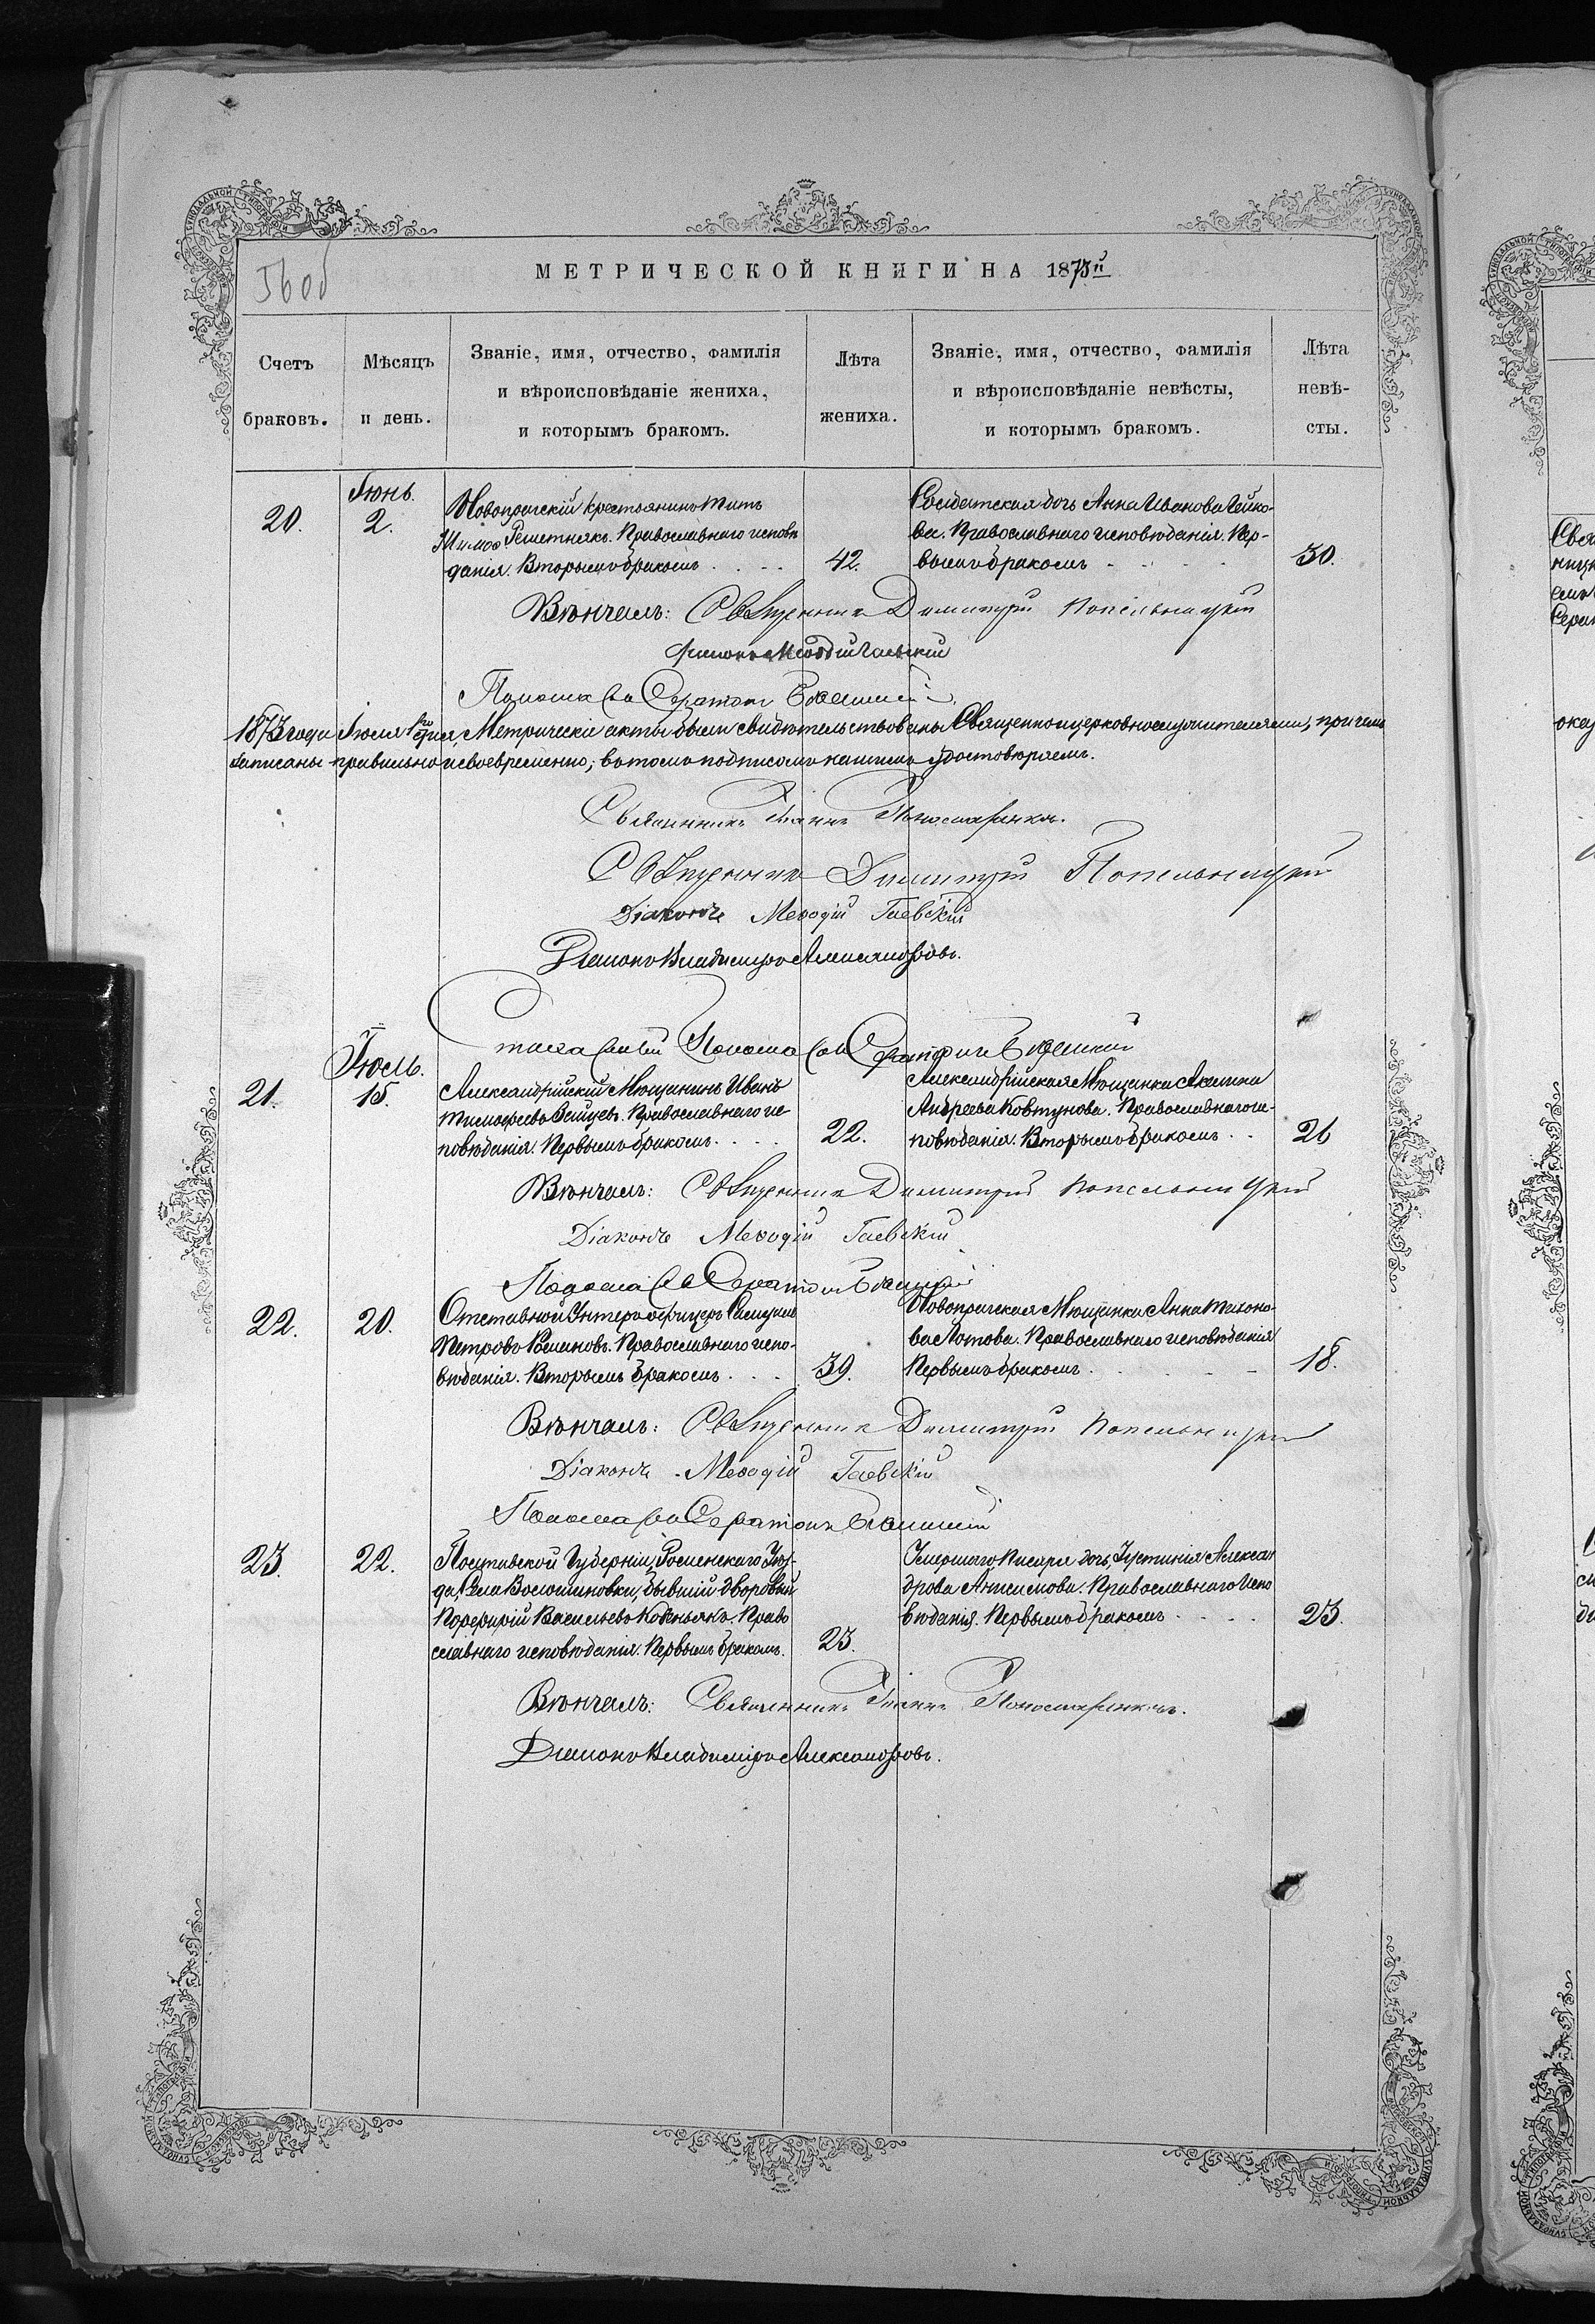 МЕТРИЧЕСКОЙ КНИГИ НА 1873й
Счетъ браковъ.
Мѣсяцъ и день.
Званіе, имя, отчество, фамилія и вѣроисповѣданіе жениха, и которымъ бракомъ.
Лѣта жениха.
Званіе, имя, отчество, фамилія и вѣроисповѣданіе невѣсты, и которымъ бракомъ.
Лѣта невѣ-сты.
20.
Іюнь.
2.
Новопражскій крестьянинъ Титъ
Решетнякъ. Православнаго исповѣ
данія. Вторымъ бракомъ
42.
Солдатская дочь Анна Иванова
ва. Православнаго исповѣданія. Пер-
вымъ бракомъ
30.
Вѣнчалъ: Священникъ Димитрій Попельницкій
Діаконъ Меѳодій Гаевскій
Пономарь
1873 года Іюля 1го дня, Метрическіе акты были свидѣтельствованы Священноицерковнослужителями, причемъ
записаны правильно и своевременно; въ томъ подписомъ нашимъ удостовѣряемъ.
Священникъ Іоаннъ
Священникъ Димитрій Попельницкій
Діаконъ Меѳодій Гаевскій
Діаконъ Владиміръ Александровъ.
Пономарь
21.
Іюль.
15.
Александрійскій Мѣщанинъ Иванъ
Тимофеевъ Православнаго ис-
повѣданія. Первымъ бракомъ
22.
Александрійская Мѣщанка Акилина
Андреева Ковтунова. Православнаго ис-
повѣданія. Вторымъ бракомъ
26
Вѣнчалъ: Священникъ Димитрій Попельницкій
Діаконъ Меѳодій Гаевскій
Пономарь
22.
20.
Отставной Унтеръ-офицеръ Самуилъ
Петровъ Романовъ. Православнаго испо-
вѣданія. Вторымъ бракомъ
39.
Новопражская Мѣщанка Анна Тихоно-
ва Лотова. Православнаго исповѣданія
Первымъ бракомъ
18.
Вѣнчалъ: Священникъ Димитрій Попельницкій
Діаконъ Меѳодій Гаевскій
Пономарь
23.
22.
Полтавской Губерніи, Роменскаго Уѣз-
да, Села Волошиновки, бывшій дворовый
Порфирій Васильевъ Право
славнаго исповѣданія. Первымъ бракомъ.
23.
Умершаго Писаря дочь, Іустинія Алексан
дрова Анисимова. Православнаго Испо
вѣданія. Первымъ бракомъ
23.
Вѣнчалъ: Священникъ Іоаннъ
Діаконъ Владиміръ Александровъ.